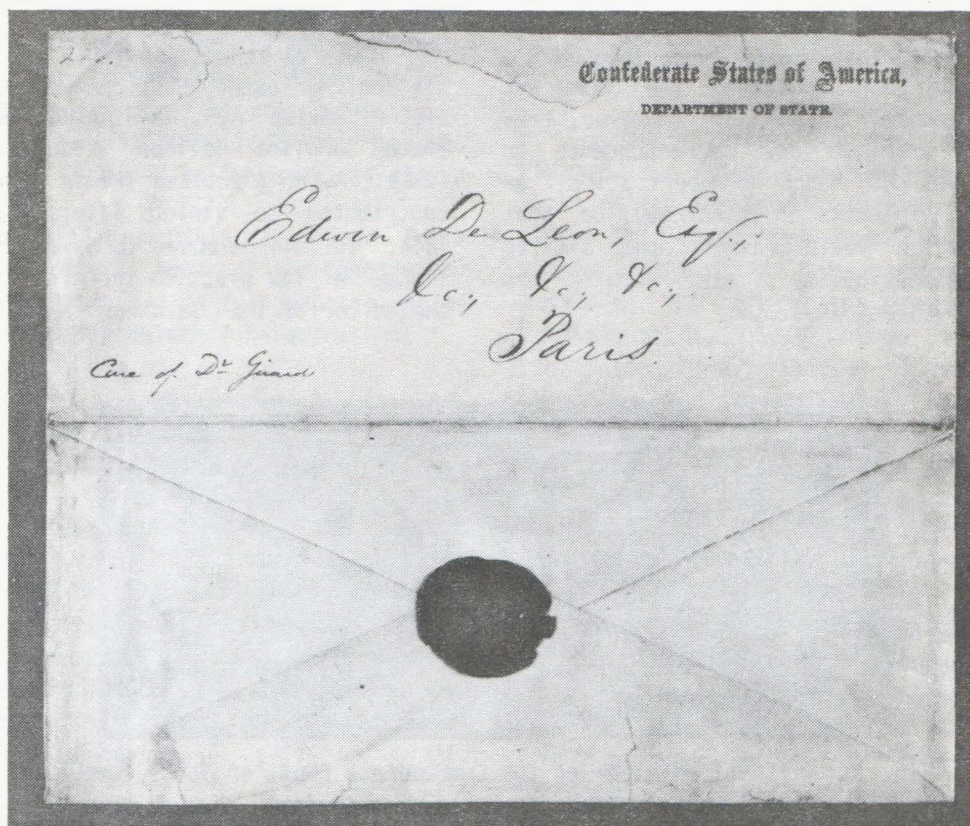 Confederate States of America,
DEPARTMENT OF STATE.
Edwin De Leon, Esq.,
&c., &c., &c.,
Paris.
Care of Dr